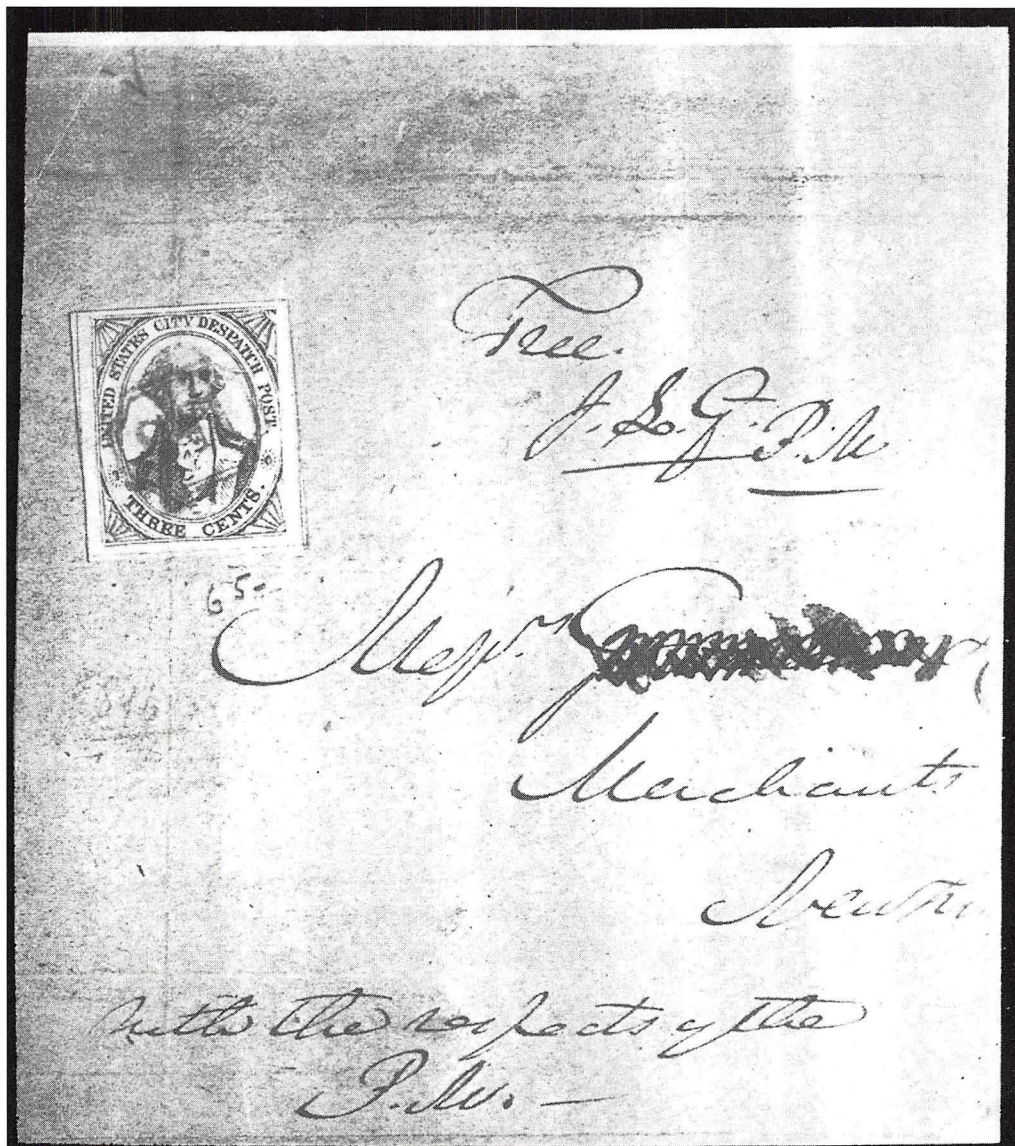 UNITED STATES CITY DESPATCH POST.
THREE CENTS.
Free.
J. L. G. P. M
65
Messrs.
Merchants
with the respects of the
P. M. —